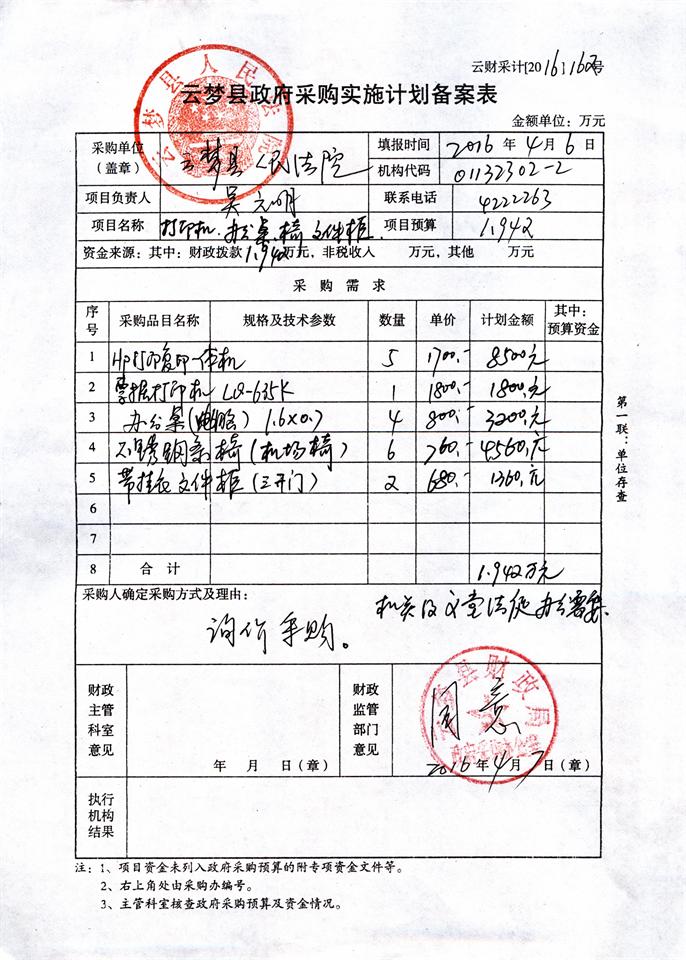 云财采计[2016]162号
云梦县政府采购实施计划备案表
金额单位：万元
采购单位（盖章） 云梦县人民法院 填报时间 2016年4月6日
机构代码 01132302-2
项目负责人 吴元明 联系电话 4222263
项目名称 打印机.办公桌.椅 文件柜. 项目预算 1.942
资金来源：其中：财政拨款1.942万元，非税收入 万元，其他 万元
采购需求
序号 采购品目名称 规格及技术参数 数量 单价 计划金额 其中：预算资金
1 HP打印复印一体机 5 1700.- 8500元
2 票据打印机 LQ-635K 1 1800.- 1800.元
3 办公桌(电脑) 1.6×0.7 4 800.- 3200.元
4 不锈钢条椅(机场椅) 6 760.- 4560.元
5 带挂衣文件柜(三开门) 2 680.- 1360.元
6
7
8 合计 1.942万元
第一联：单位存查
采购人确定采购方式及理由：
机关及文堂法庭办公需要.
询价采购。
财政主管科室意见
年 月 日（章）
财政监管部门意见
同意
2016年4月7日（章）
云梦县财政局
执行机构结果
注：1、项目资金未列入政府采购预算的附专项资金文件等。
2、右上角处由采购办编号。
3、主管科室核查政府采购预算及资金情况。